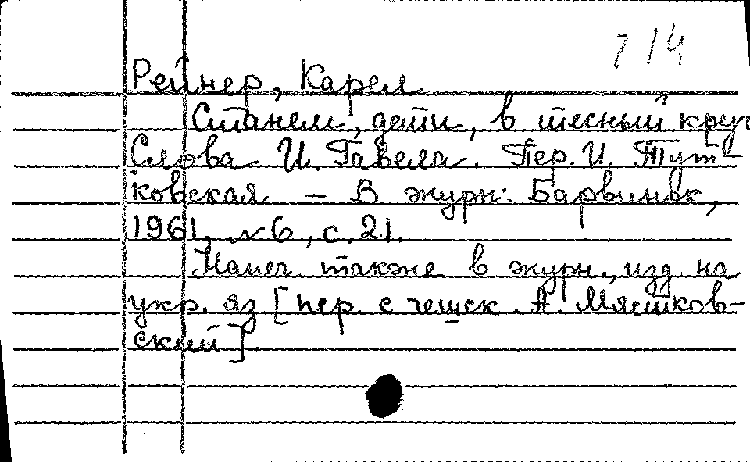 7 14
Рейнер, Карел
Станем, дети, в тесный круг
Слова И. Гавела. Пер. И. Тут-
ковская – В журн: Барвинок,
1961, №6, с. 21.
Напеч. также в журн., изд. на
укр. яз [пер. с чешск. А. Мястков-
ский]